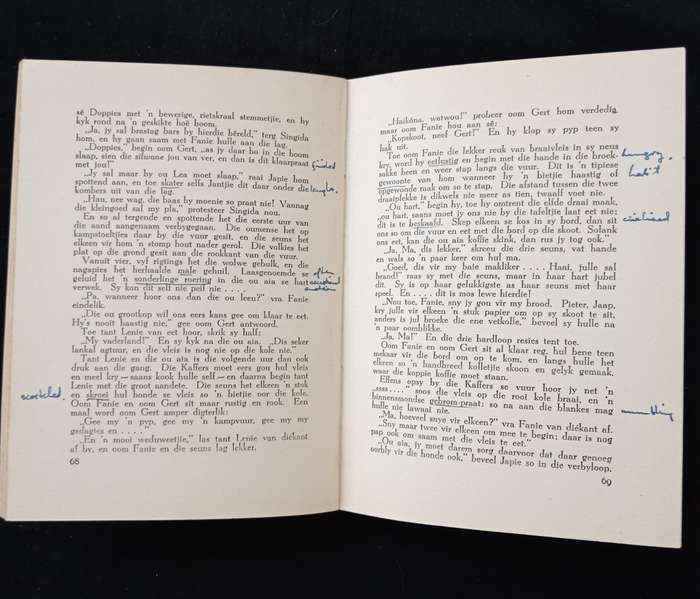 sê Doppies met 'n bewerige, rietskraal stemmetjie, en hy
kyk rond na 'n geskikte hoë boom.
„Ja, jy sal brastag bars by hierdie bêreld,” terg Singida
hom, en hy gaan saam met Fanie hulle aan die lag.
„Doppies,” begin oom Gert, „as jy daar bo in die boom
slaap, sien die silwane jou van ver, en dan is dit klaarpraad
met jou!”
„Jy sal maar by ou Lea moet slaap,” raai Japie hom
spottend aan, en toe skater selfs Jantjie dit daar onder die
kombers uit van die lag.
„Hau, nee wag, die baas hy moenie so praat nie! Vannag
die kleingoed sal my pla,” protesteer Singida nou.
En so al tergende en spottende het die eerste uur van
die aand aangenaam verbygegaan. Die oumense het op
kampstoeltjies daar by die vuur gesit, en die seuns het
elkeen vir hom 'n stomp hout nader gerol. Die volkies het
plat op die grond gesit aan die rookkant van die vuur.
Vanuit vier, vyf rigtings het die wolwe gehuil, en die
nagapies het herhaalde male gehuil. Laasgenoemde se often
geluid het 'n sonderlinge roering in die ou aia se hart
verwek. Sy kon dit self nie peil nie . . . .
„Pa, wanneer hoor ons dan die ou leeu?” vra Fanie
eindelik.
„Die ou grootkop wil ons eers kans gee om klaar te eet.
Hy's nooit haastig nie,” gee oom Gert antwoord.
Toe tant Lenie van eet hoor, skrik sy half:
„My vaderland!” En sy kyk na die ou aia. „Dis seker
lankal agtuur, en die vleis is nog nie op die kole nie.”
Tant Lenie en die ou aia is die volgende uur dan ook
druk aan die gang. Die Kaffers moet eers gou hul vleis
en meel kry — saans kook hulle self — en daarna begin tant
Lenie met die groot aandete. Die seuns het elkeen 'n stuk
en skroei hul honde se vleis so 'n bietjie oor die kole.
Oom Fanie en oom Gert sit maar rustig en rook. Een
maal word oom Gert amper digterlik:
„Gee my 'n pyp, gee my 'n kampvuur, gee my my
gedagies en . . . .”
„En 'n mooi weduweetjie,” las tant Lenie van diékant
af by, en oom Fanie en die seuns lag lekker.
68
„Haikôna, watwou!” probeer oom Gert hom verdedig,
maar oom Fanie hou aan sê:
„Kopskoot, neef Gert!” En hy klop sy pyp teen sy
hak uit.
Toe oom Fanie die lekker reuk van braaivleis in sy neus
kry, word hy eetlustig en begin met die hande in die broek- hungry
sakke heen en weer stap langs die vuur. Dit is 'n tipiese
gewoonte van hom wanneer hy 'n bietjie haastig of habit
opgewonde raak om so te stap. Die afstand tussen die twee
draaiplekke is dikwels nie meer as tien, twaalf voet nie.
„Ou hart,” begin hy, toe hy omtrent die elfde draai maak,
„ou hart, saans moet jy ons nie by die tafeltjie laat eet nie;
dit is te beskaafd. Skep elkeen se kos in sy bord, dan sit civilised
ons so om die vuur en eet met die bord op die skoot. Solank
ons eet, kan die ou aia koffie skink, dan rus jy tog ook.”
„Ja, Ma, dis lekker,” skreeu die drie seuns, vat hande
en wals so 'n paar keer om hul ma.
„Goed, dis vir my baie makliker . . . . Haai, julle sal
brand!” raas sy met die seuns, maar in haar hart jubel
dit. Sy is op haar gelukkigste as haar seuns met haar
speel. En . . . . dit is mos lewe hierdie!
„Nou toe, Fanie, sny jy gou vir my brood. Pieter, Jaap,
kry julle vir elkeen 'n stuk papier om op sy skoot te sit,
anders is jul broeke die ene vetkolle,” beveel sy hulle na
'n paar oomblikke.
„Ja, Ma!” En die drie hardloop resies tent toe.
Oom Fanie en oom Gert sit al klaar reg, hul bene teen
mekaar vir die bord om op te kom, en langs hulle het
elkeen 'n handbreed kolletjie skoon en gelyk gemaak,
waar die koppie koffie moet staan.
Effens opsy by die Kaffers se vuur hoor jy net 'n
„ssss . . . .” soos die vleis op die rooi kole braai, en 'n
binnensmondse gebrom-praat; so na aan die blankes mag
hulle nie lawaai nie.
„Ma, hoeveel snye vir elkeen?” vra Fanie diékant af.
„Sny maar twee vir elkeen om mee te begin; daar is nog
pap ook om saam met die vleis te eet.”
„Ou aia, jy moet darem sorg daarvoor dat daar genoeg
oorbly vir die honde ook,” beveel Japie so in die verbyloop.
69